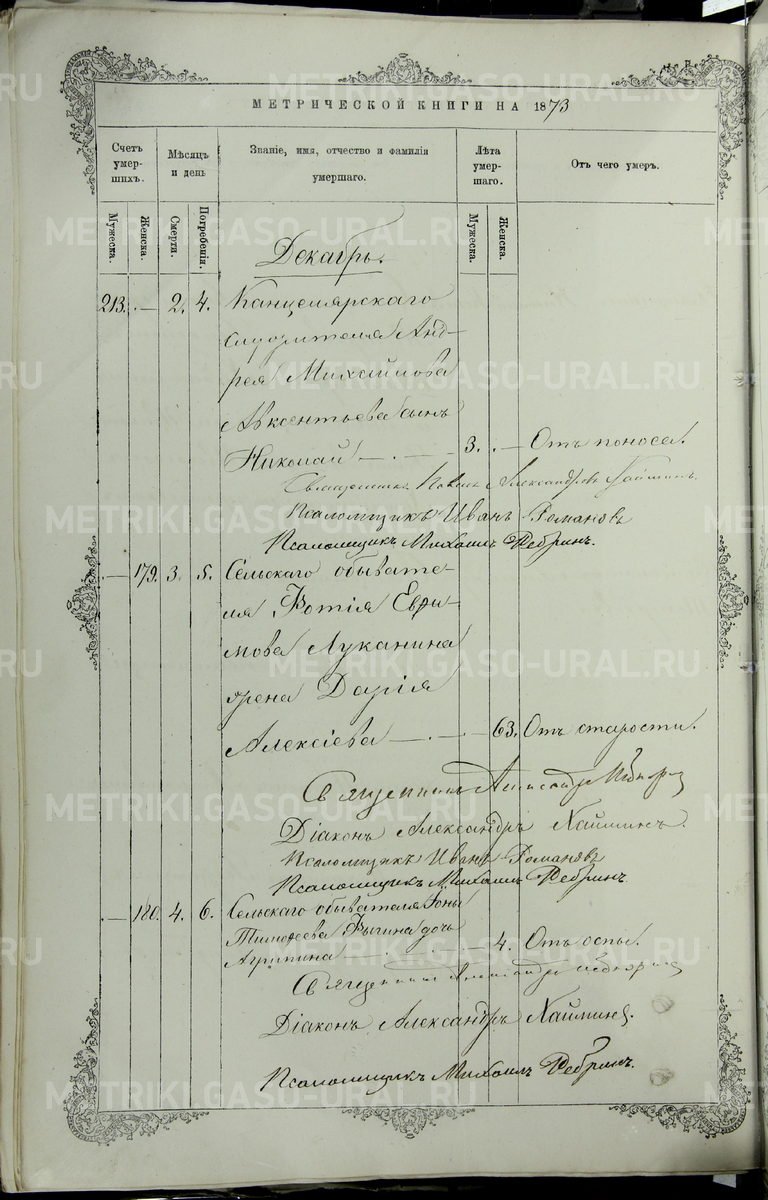 МЕТРИЧЕСКОЙ КНИГИ НА 1873
Счетъ умерших.
Мѣсяцъ и день
Званіе, имя, отчество и фамилія умершаго.
Лѣта умершаго.
Отъ чего умеръ.
Мужеска.
Женска.
Смерти.
Погребенія.
Мужеска.
Женска.
Декабрь.
213. — 2. 4. Канцелярскаго
служителя Анд-
рея Михайлова
Авксентьева сынъ
Николай — 3. — Отъ поноса.
Александръ Хайминъ.
Псаломщикъ Иванъ Романовъ
Псаломщикъ Михаилъ Ребринъ.
— 179. 3. 5. Сельскаго обывате-
ля Фотія Ефи-
мова Луканина
жена Дарія
Алексіева — 63. Отъ старости.
Священникъ Александръ
Діаконъ Александръ Хайминъ.
Псаломщикъ Иванъ Романовъ
Псаломщикъ Михаилъ Ребринъ.
— 180. 4. 6. Сельскаго обывателя Іоны
Тимофеева дочь
Агрипина 4. Отъ оспы.
Священникъ Александръ
Діаконъ Александръ Хайминъ.
Псаломщикъ Михаилъ Ребринъ.
METRIKI.GASO-URAL.RU